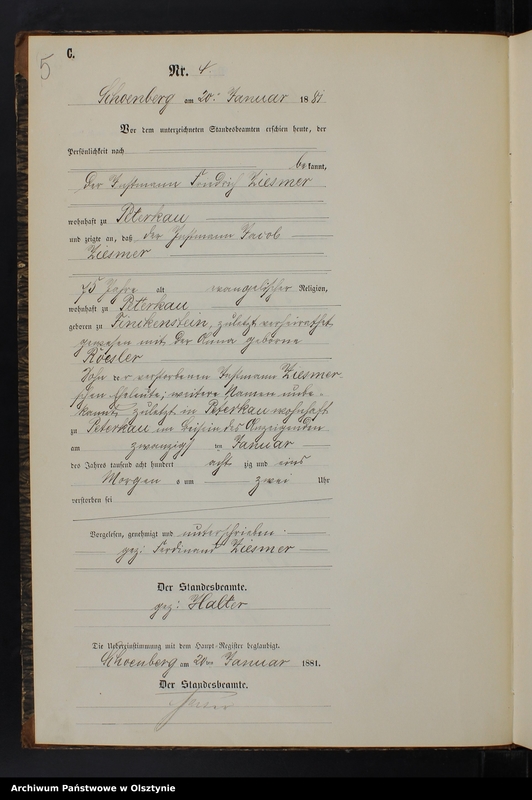 5
C.
Nr. 4.
Schoenberg am 20. Januar 1881
Vor dem unterzeichneten Standesbeamten erschien heute, der
Persönlichkeit nach
bekannt,
der Instmann Ziesmer
wohnhaft zu Peterkau
und zeigte an, daß der Instmann Jacob
Ziesmer
75 Jahre alt evangelischer Religion,
wohnhaft zu Peterkau
geboren zu Finckenstein, zuletzt verheirathet
gewesen mit der Anna geborne
Röesler
Sohn der verstorbenen Instmann Ziesmer-
schen Eheleute, weitere Namen unbe-
kannt, zuletzt in Peterkau wohnhaft
zu Peterkau im Beisein des Anzeigenden
am zwanzigs ten Januar
des Jahres tausend acht hundert acht zig und eins
Morgen s um zwei Uhr
verstorben sei
Vorgelesen, genehmigt und unterschrieben.
gez: Ferdinand Ziesmer
Der Standesbeamte.
gez: Halter
Die Uebereinstimmung mit dem Haupt-Register beglaubigt.
Schoenberg am 20ten Januar 1881.
Der Standesbeamte.
Archiwum Państwowe w Olsztynie